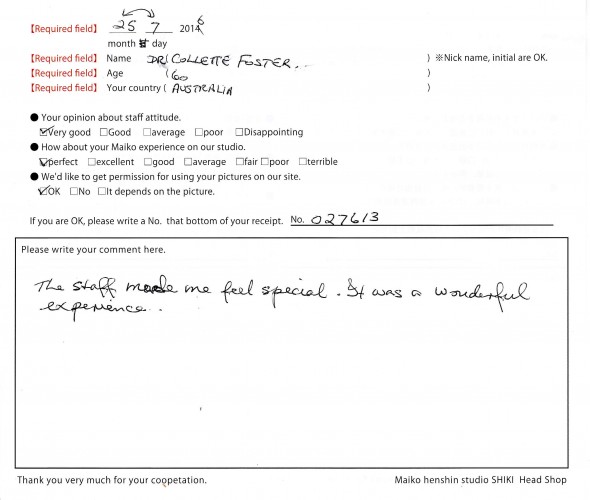 【Required field】 25 7 2016
month # day
【Required field】 Name DR( COLLETTE FOSTER. ) ※Nick name, initial are OK.
【Required field】 Age (60 )
【Required field】 Your country ( AUSTRALIA )
● Your opinion about staff attitude.
☑Very good □Good □average □poor □Disappointing
● How about your Maiko experience on our studio.
☑perfect □excellent □good □average □fair □poor □terrible
● We'd like to get permission for using your pictures on our site.
☑OK □No □It depends on the picture.
If you are OK, please write a No. that bottom of your receipt. No. 027613
Please write your comment here.
The staff made me feel special. It was a wonderful
experience..
Thank you very much for your coopetation. Maiko henshin studio SHIKI Head Shop